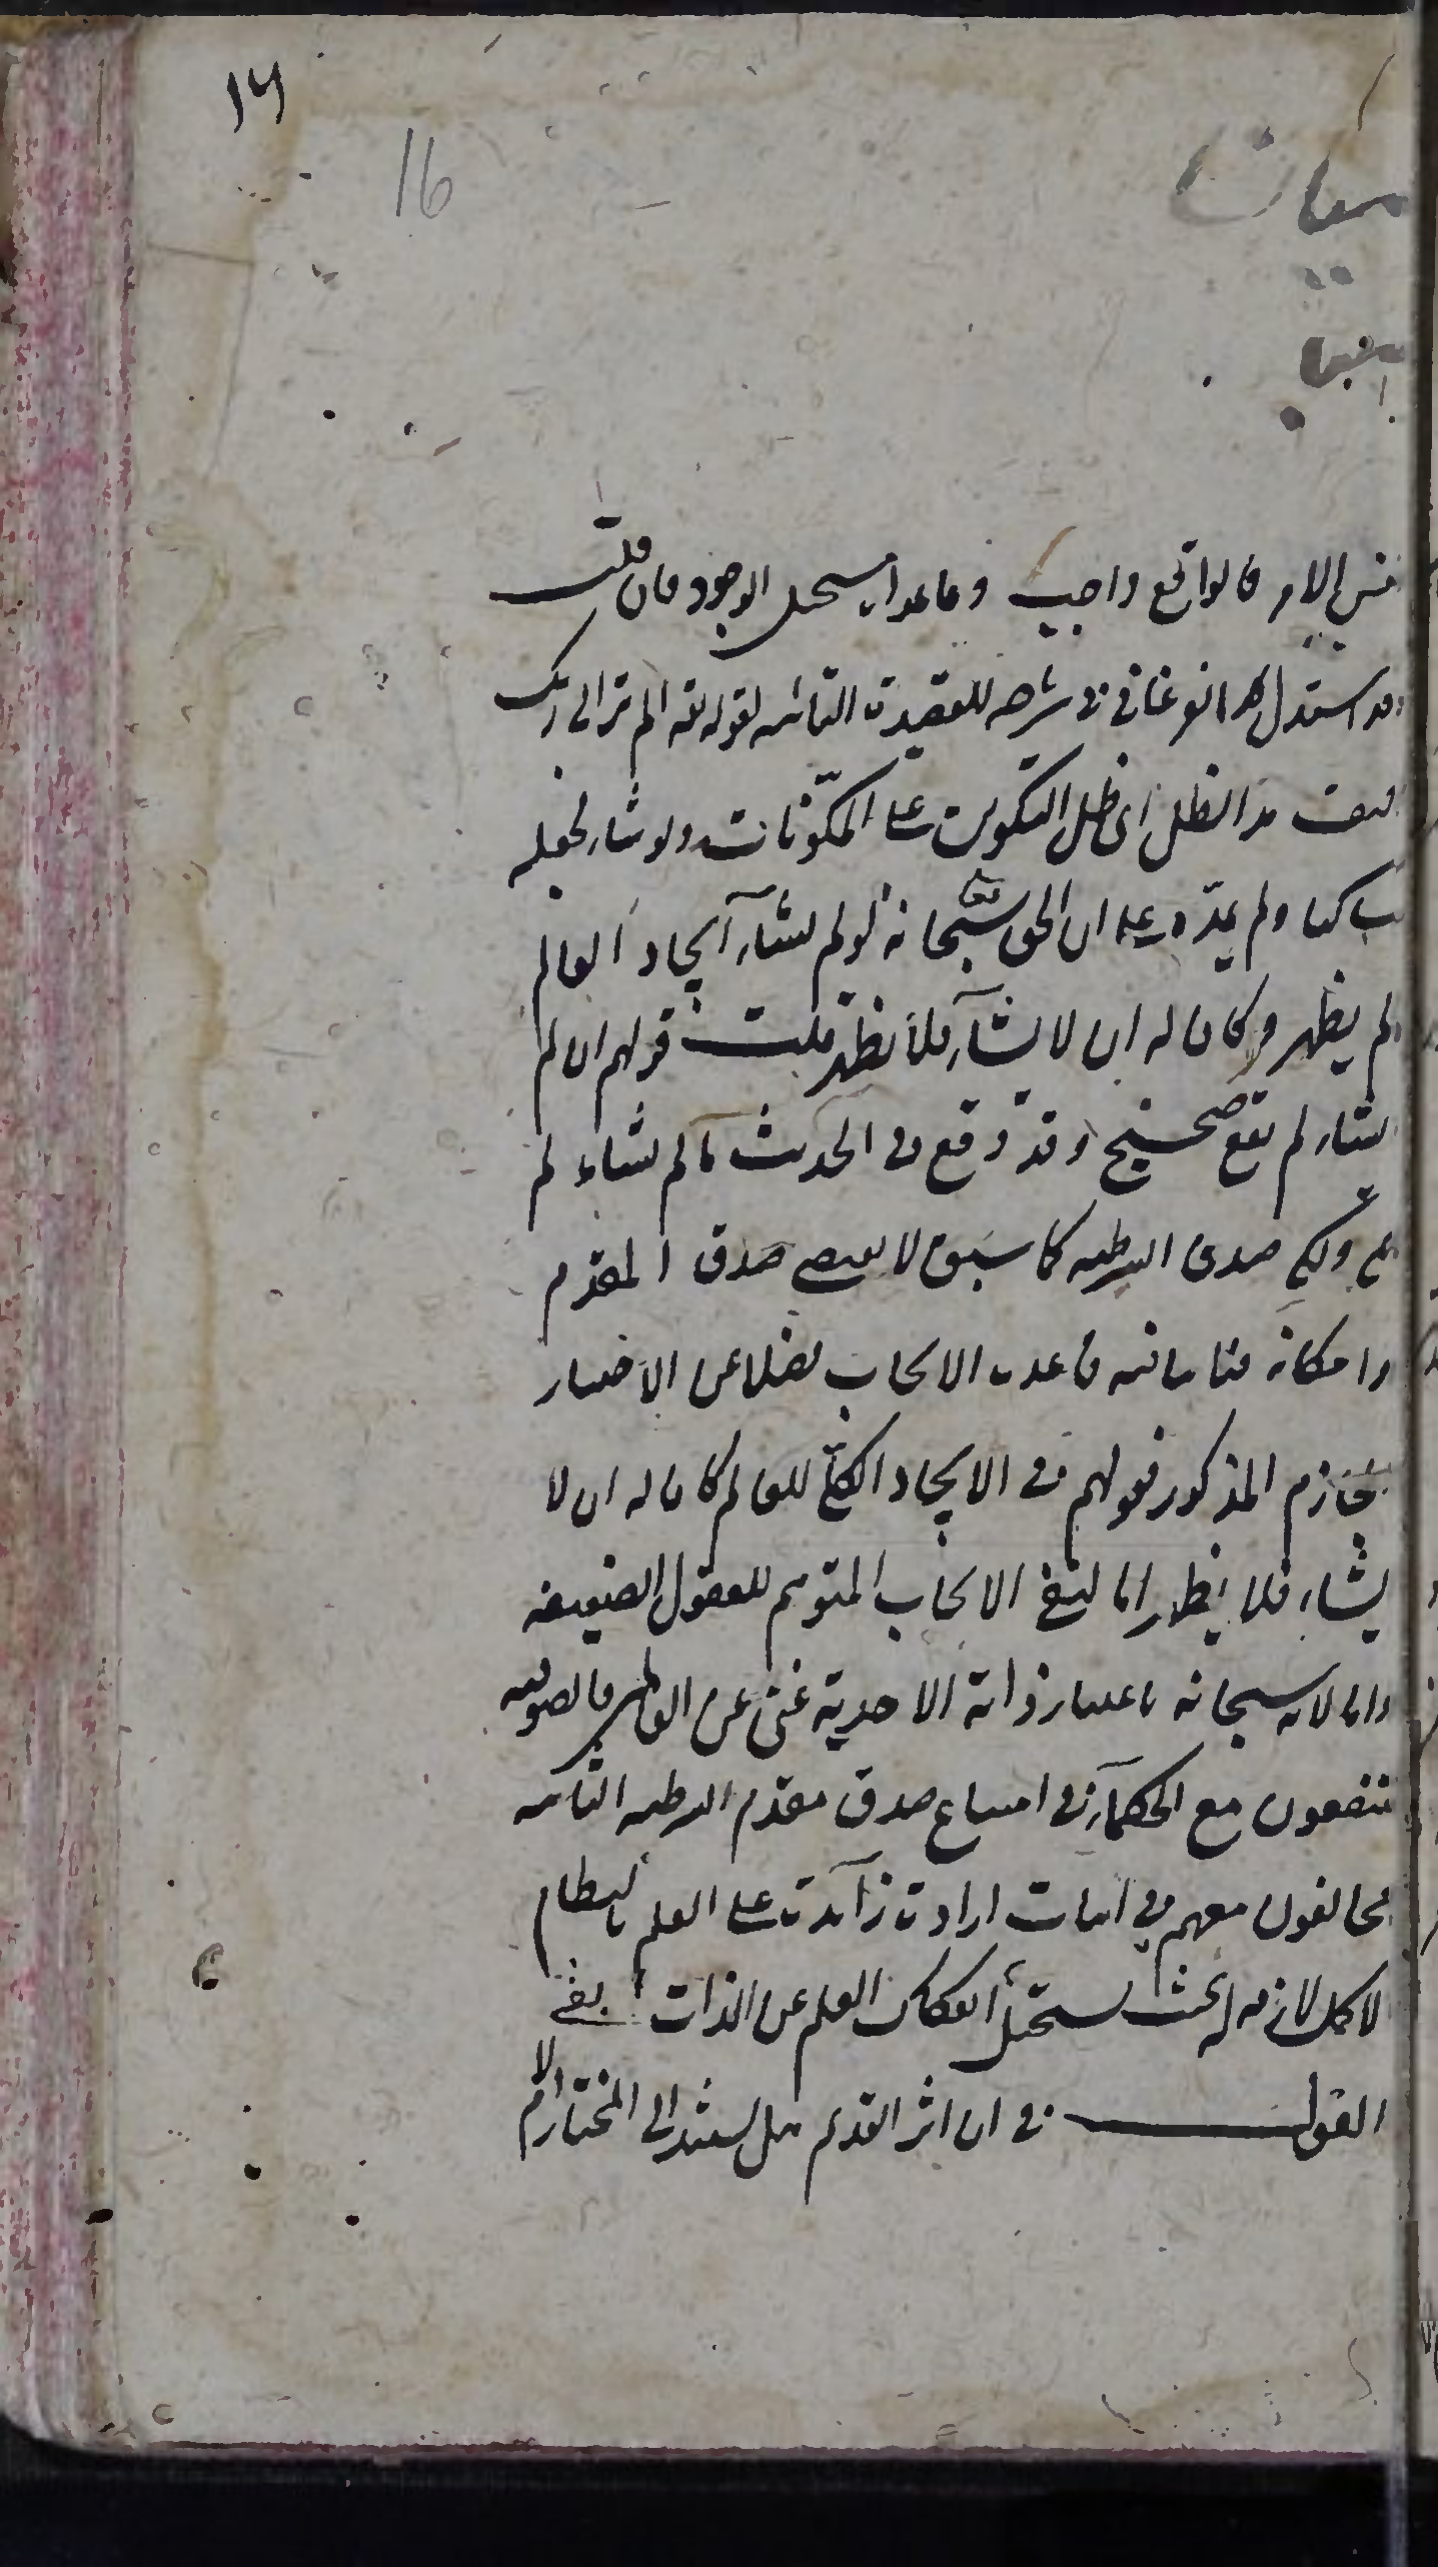 ١٦
16
نفس الامر فالواقع واجب وما عداه مستحيل الوجود فان قلت
قد استدل الفرغاني في شرحه للقصيدة التائية بقوله تعه الم تر الى ربك
كيف مد الظل اى ظل التكوين على المكونات ولو شاء لجعله
ساكنا ولم يمده على ان الحق سبحانه لو لم يشاء ايجاد العالم
لم يظهر وكان له ان لا يشاء فلا يظهر قلت قولهم ان لم
يشاء لم يقع صحيح وقد وقع في الحديث ما لم يشاء لم
يقع ولكن صدق الشرطية كما سبق لا يقتضى صدق المقدم
وامكانه فلا ينافيه قاعدة الايجاب فضلا عن الاختيار
الجازم المذكور فقولهم في الايجاد الكلى للعالم كان له ان لا
يشاء فلا يظهر اما لنفى الايجاب المتوهم للعقول الضعيفة
واما لانه سبحانه باعتبار ذاته الاحدية غنى عن العالمين فالصوفية
متفقون مع الحكماء في امتناع صدق مقدم الشرطية الثانية
مخالفون معهم في اثبات ارادة زائدة على العلم بالنظام
الاكمل لازمه له بحيث يستحيل انفكاك العلم عن الذات بقى
القول في ان اثر القديم هل يستند الى المختار ام لا